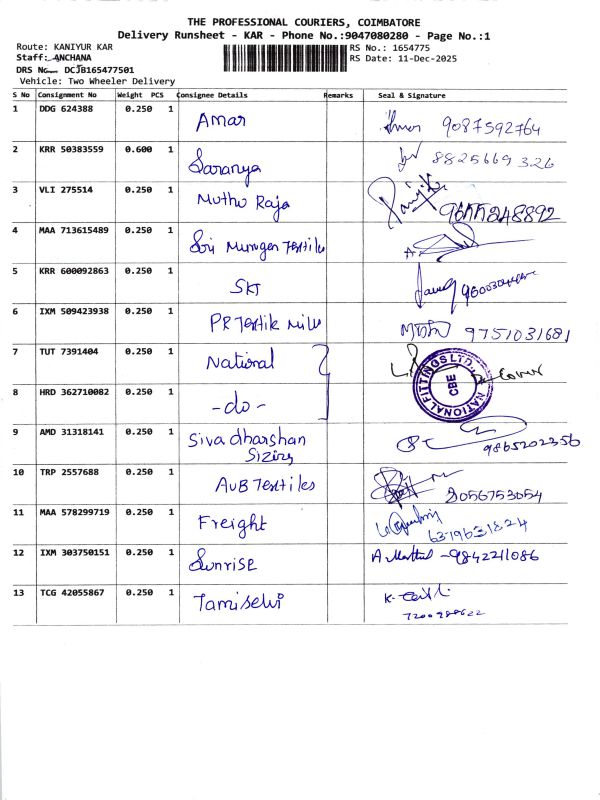 THE PROFESSIONAL COURIERS, COIMBATORE
Delivery Runsheet - KAR - Phone No.:9047080280 - Page No.:1
Route: KANIYUR KAR RS No.: 1654775
Staff: ANCHANA RS Date: 11-Dec-2025
DRS No DCJB165477501
Vehicle: Two Wheeler Delivery
S No Consignment No Weight PCS Consignee Details Remarks Seal & Signature
1 DDG 624388 0.250 1 Amar 9087592764
2 KRR 50383559 0.600 1 Saranya 8825669326
3 VLI 275514 0.250 1 Muthu Raja
4 MAA 713615489 0.250 1 Sri Murugan Textile
5 KRR 600092863 0.250 1 SKT
6 IXM 509423938 0.250 1 PR Textile Mills 9751031681
7 TUT 7391404 0.250 1 National NATIONAL FITTINGS LTD., CBE
8 HRD 362710082 0.250 1 -do-
9 AMD 31318141 0.250 1 Sivadharshan
Sizing 9865202356
10 TRP 2557688 0.250 1 AVB Textiles 8056753054
11 MAA 578299719 0.250 1 Freight 6379631824
12 IXM 303750151 0.250 1 Sunrise -9842211086
13 TCG 42055867 0.250 1 Tamiselvi